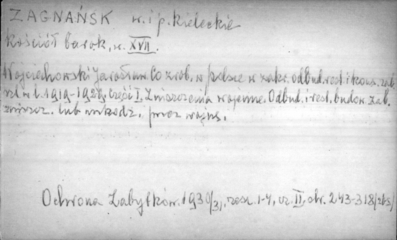 ZAGNAŃSK w. i p. kieleckie
Kościół barok, w. XVII.
Wojciechowski Jarosław Co zrob. w Polsce w zakr. odbud. rest. i kons. zab.
w l. 1919-1929. Część I, Zniszczenia wojenne. Odbud. i rest. budow. zab.
zniszcz. lub uszkodz. przez wojnę.
Ochrona Zabytków. 1930/31, zesz. 1-4, cz. II, str. 243-318